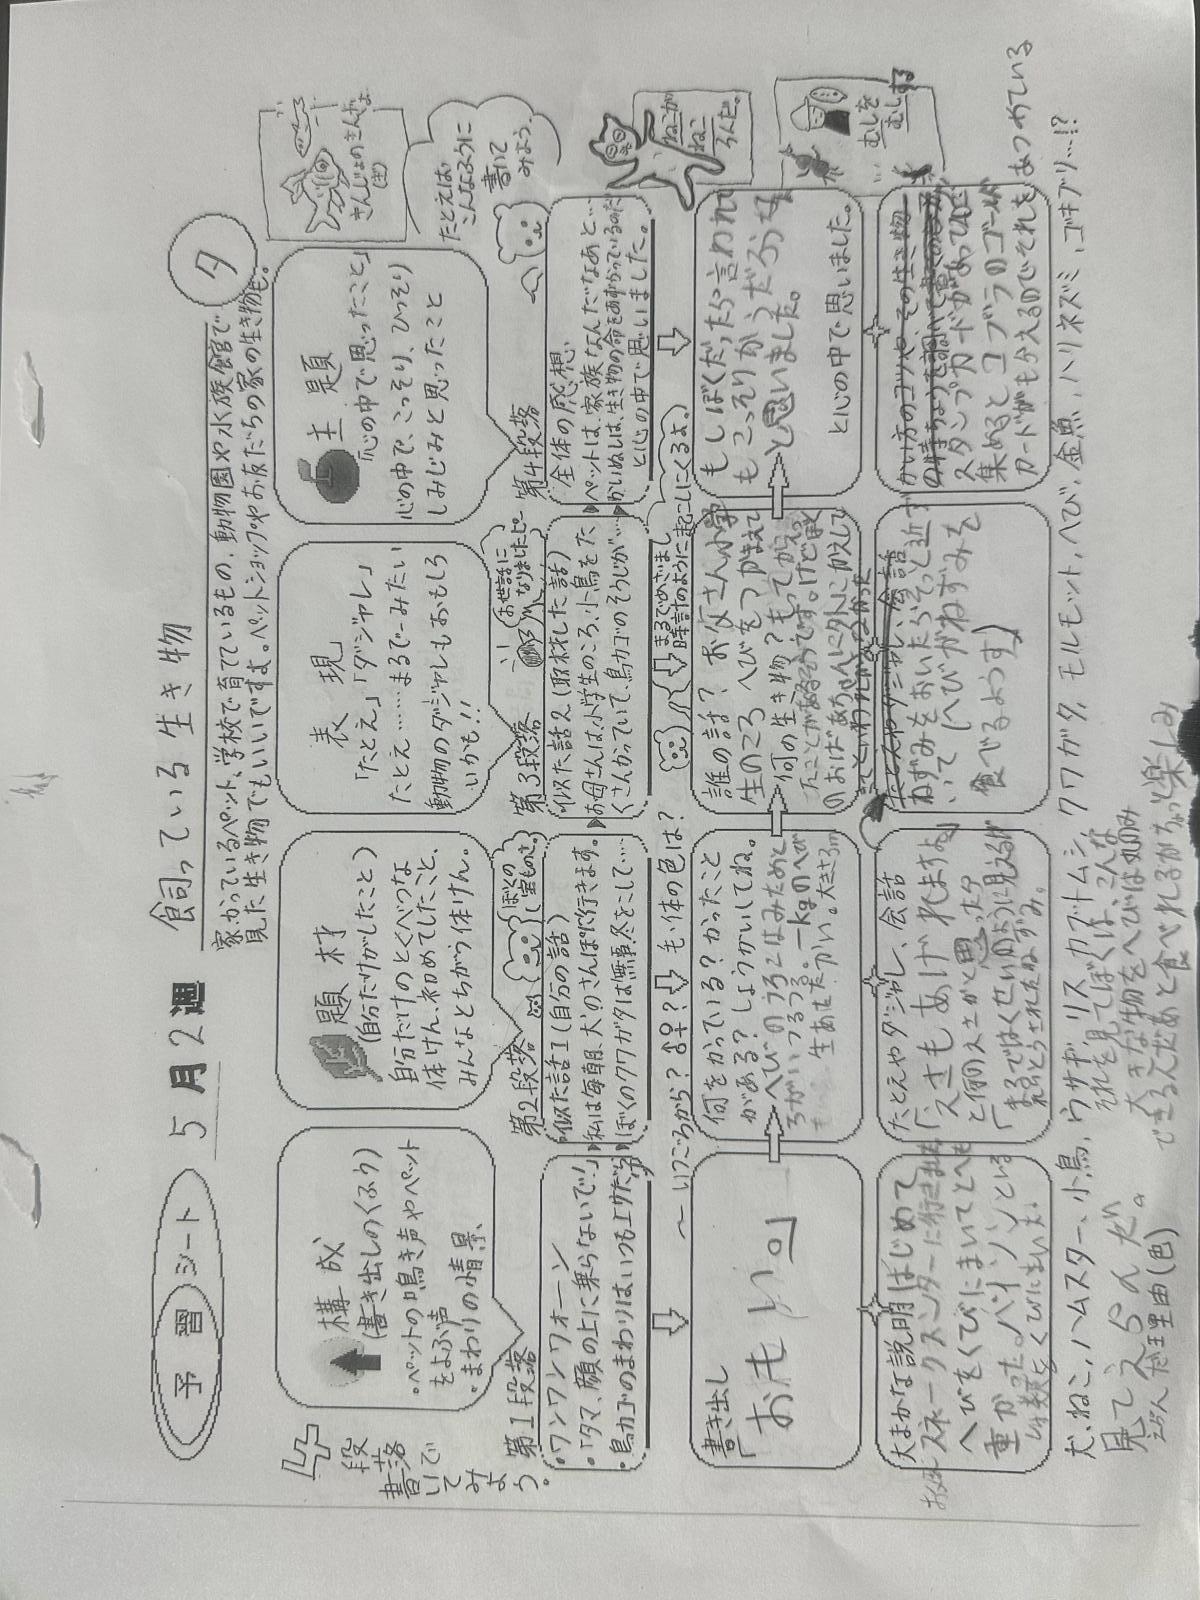 予習シート
5月2週
飼っている生き物
夕
家かっているペット、学校で育てているもの、動物園や水族館で
見た生き物でもいいですよ。ペットショップやお友だちの家の生き物も。
4段落で
書いてみよう。
構成
(書き出しのくふう)
・ペットの鳴き声やペット
をよぶ声
・まわりの情景、
題材
(自分だけがしたこと)
自分だけのとくべつな
体けん、初めてしたこと、
みんなとちがう体けん。
表現
「たとえ」「ダジャレ」
たとえ……まるで~みたい
動物のダジャレもおもしろ
いかも!!
主題
「心の中で思ったこと」
心の中で、こっそり、ひっそり
しみじみと思ったこと
さんまの
たとえば
こんなふうに
書いて
みよう。
第1段落
・ワンワンワオーン
・「タマ、顔の上に乗らないで!」
・鳥カゴのまわりはいつも
第2段落
ぼくの
宝もの。
似た話1(自分の話)
私は毎朝、犬のさんぽに行きます。
ぼくのクワガタは無事冬をこして…
第3段落
お世話に
なりましたピー
似た話2(取材した話)
お母さんは小学生のころ、小鳥をた
くさんかっていて、鳥カゴのそうじが…
第4段落
全体の感想
ペットは、家族なんだなあと…
かいぬしは、生き物の命をあずかっているのだ
と心の中で思いました。
ねこが
ねこ
ろんだ。
むしを
むしする
~いつごろから?⇨♂♀?⇨毛・体の色は?
まるでめざまし
時計のように起こしにくるよ。
書き出し
「おもいの」
何をかっている?かったこと
がある?しょうかいしてね。
へびのうろこはみためと
ろがいつるつる。一kgのへび
も生あたたかい。大きさ3m
誰の話?お父さん小学
生のころへびをつかまえて
何の生き物?もってかえっ
たことがあるそうです。けどぼく
のおばあちゃんに外にかえして
きてといわれ
もしぼくだったら言われて
もこっそりかうだろうな
と思いました。
と心の中で思いました。
大まかな説明はじめて
スネークスセンターに行きました
へびをくびにまいてとても
重かった。パイソンという
しゅ類をくびにまいた。
たとえやダジャレ、会話
「えさもあげれますよ」
と何のえさかと思ったら
「まるではくせいのように見えるけど
れいとうされたねずみ。
たとえやダジャレ、会話
ねずみをおいたらそっと近づ
いって(へびがねずみを
食べるようす)
かい方のコツや、その生き物
の特ちょうを調べて書いてもよい
スタンプカードがあってぜんぶ
集めるとコブラのゴールド
カードがもらえるのでそれをあつめている
犬、ねこ、ハムスター、小鳥、ウサギ、リス、カブトムシ、クワガタ、モルモット、へび、金魚、ハリネズミ、ゴキブリ…!?
見てえらんだ。
えらんだ理由(色)
それを見てぼくは、こんな
大きな物をへびは丸のみ
できるんだなあと食べれるかちょっと楽しみ